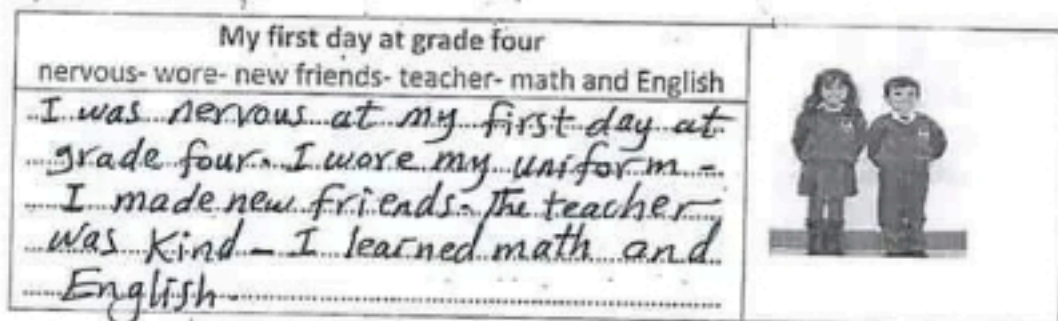 My first day at grade four
nervous- wore- new friends- teacher- math and English
I was nervous at my first day at
grade four. I wore my uniform -
I made new friends. The teacher
was kind - I learned math and
English.